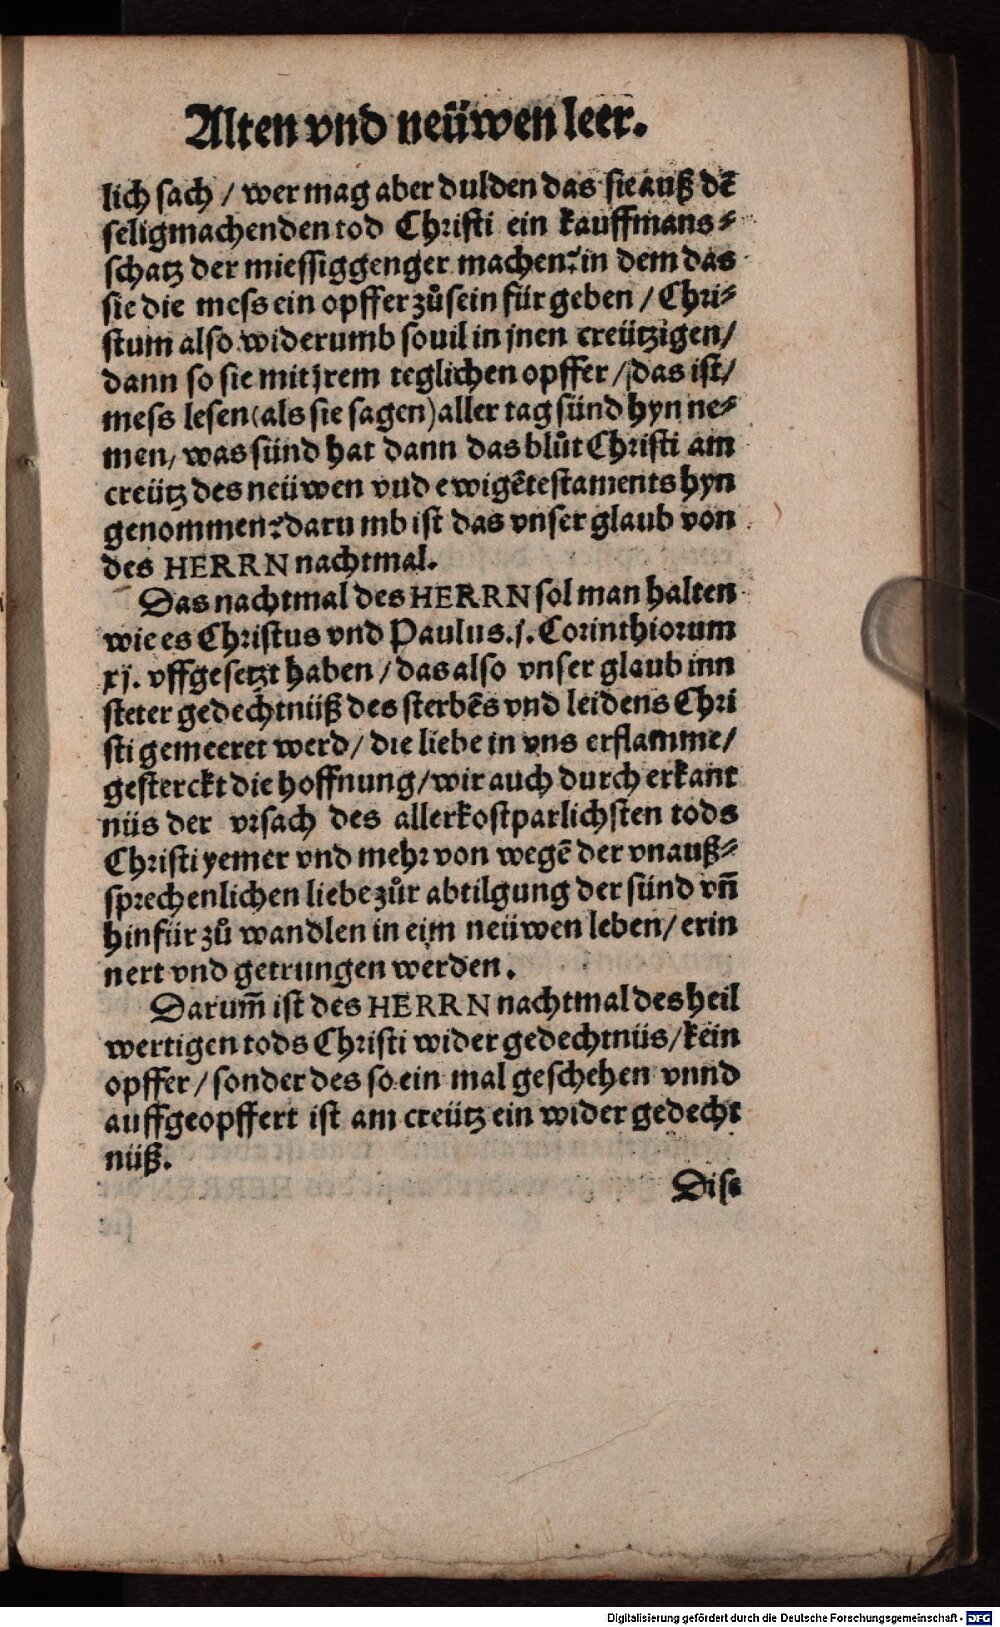 Alten vnd neüwen leer.
lich sach / wer mag aber dulden das sie auß dē
seligmachenden tod Christi ein kauffmans⸗
schatz der miessiggenger machen? in dem das
sie die mess ein opffer zůsein für geben / Chri⸗
stum also widerumb souil in jnen creützigen /
dann so sie mit jrem teglichen opffer / das ist /
mess lesen (als sie sagen) aller tag sünd hyn ne⸗
men, was sünd hat dann das blůt Christi am
creütz des neüwen vnd ewigē testaments hyn
genommen? darumb ist das vnser glaub von
des HERRN nachtmal.
Das nachtmal des HERRN sol man halten
wie es Christus vnd Paulus .j. Corinthiorum
xj. vffgesetzt haben / das also vnser glaub inn
steter gedechtnüß des sterbēs vnd leidens Chri
sti gemeeret werd / die liebe in vns erflamme /
gesterckt die hoffnung / wir auch durch erkant
nüs der vrsach des allerkostparlichsten tods
Christi yemer vnd mehr von wegē der vnauß⸗
sprechenlichen liebe zůr abtilgung der sünd vñ
hinfür zů wandlen in eim neüwen leben / erin
nert vnd getrungen werden.
Darum̄ ist des HERRN nachtmal des heil
wertigen tods Christi wider gedechtnüs / kein
opffer / sonder des so ein mal geschehen vnnd
auffgeopffert ist am creütz ein wider gedecht
nüß.
Dise
Digitalisierung gefördert durch die Deutsche Forschungsgemeinschaft - DFG